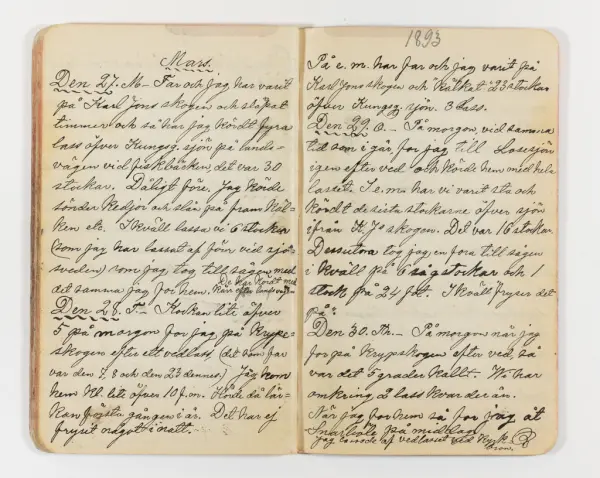 Mars.
Den 27. M- Far och jag har varit
på Karl Jons skogen och släpat
timmer och så har jag kördt fyra
lass öfver Kungsg. sjön på lands-
vägen vid fiskbäcken, det var 30
stockar. Dåligt före. Jag körde
sönder och slån på fram
ken etc. I kväll lassa vi 6 stockar
(som jag har lassat af förr vid sjö-
svedien) som jag tog till sågen med
det samma jag for hem.
Den 28. T.- Klockan lite öfver
5 på morgon for jag på Kryps-
skogen efter ett vedlass (det som far
var den 7, 8 och den 23 dennes) Jag kom
hem kl. lite öfver 10 f.m. Hörde då lär-
kan första gången i år. Det har ej
frysit något i natt.-
1893
På e. m. har far och jag varit på
Karl Jons skogen och kälkat 23 stockar
öfver Kungsg. sjön. 3 lass.
Den 29. O.- På morgon vid samma
tid som i går, for jag till
igen efter ved och körde hem med hela
lasset. I e.m. har vi varit sta och
kördt de sista stockarne öfver sjön
ifrån K. J. skogen. Det var 16 stockar.
Dessutom tog jag en fora till sågen
i kväll på 6 sågstockar och 1
stock på 24 fot. I kväll fryser det
på.
Den 30. Th.- På morgon när jag
for på Krypskogen efter ved, så
var det 5 grader kallt. Vi har
omkring 2 lass kvar der än.
När jag for hem så for jag åt
Snarböle på midtlan
jag körde af vedlasset vid